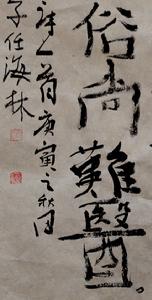 俗尚難醫
詩一首庚寅之秋月
子任海林